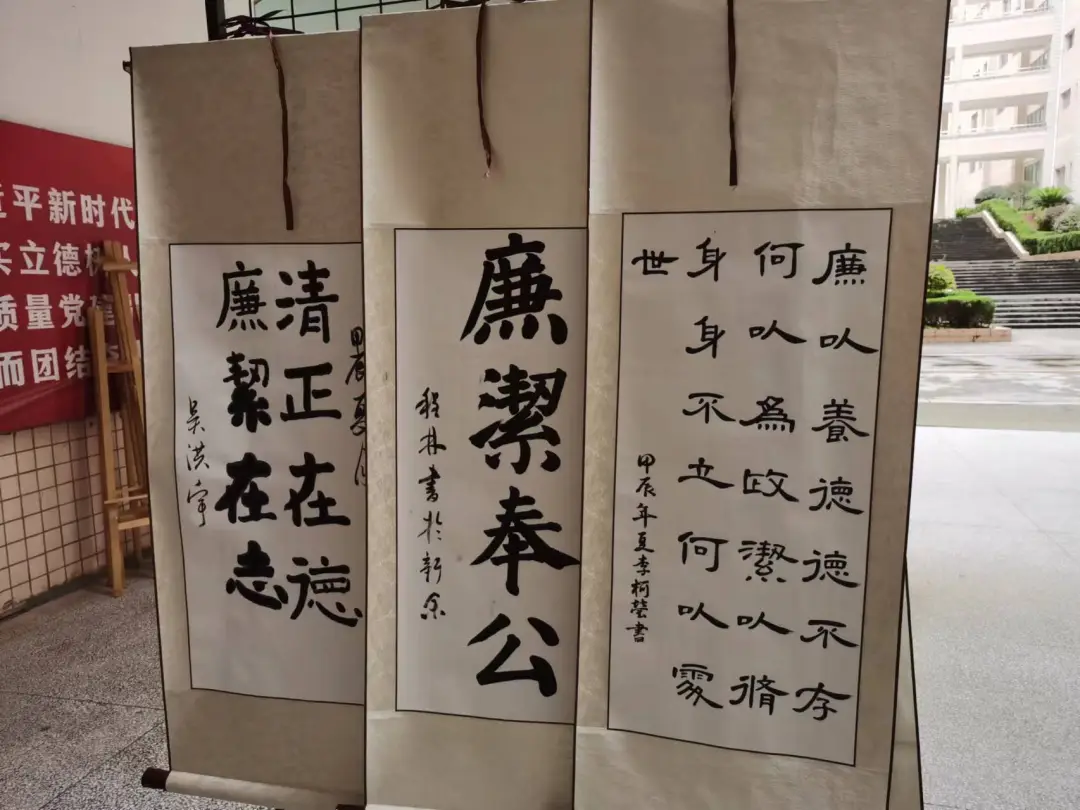 平新时代
立德
质量党
而团结
甲辰夏
清正在德
廉絜在志
吴洪
廉潔奉公
程林書於新余
廉以養德德不存
何以為政潔以脩
身身不立何以處
世
甲辰年夏李柯瑩書